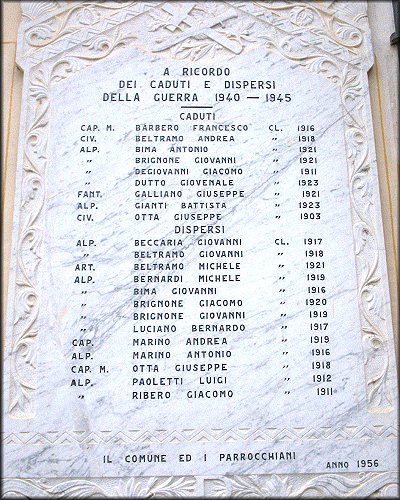 A RICORDO
DEI CADUTI E DISPERSI
DELLA GUERRA 1940 — 1945
CADUTI
CAP. M. BARBERO FRANCESCO CL. 1916
CIV. BELTRAMO ANDREA " 1918
ALP. BIMA ANTONIO " 1921
" BRIGNONE GIOVANNI " 1921
" DEGIOVANNI GIACOMO " 1911
" DUTTO GIOVENALE " 1923
FANT. GALLIANO GIUSEPPE " 1921
ALP. GIANTI BATTISTA " 1923
CIV. OTTA GIUSEPPE " 1903
DISPERSI
ALP. BECCARIA GIOVANNI CL. 1917
" BELTRAMO GIOVANNI " 1918
ART. BELTRAMO MICHELE " 1921
ALP. BERNARDI MICHELE " 1919
" BIMA GIOVANNI " 1916
" BRIGNONE GIACOMO " 1920
" BRIGNONE GIOVANNI " 1919
" LUCIANO BERNARDO " 1917
CAP. MARINO ANDREA " 1919
ALP. MARINO ANTONIO " 1916
CAP. M. OTTA GIUSEPPE " 1918
ALP. PAOLETTI LUIGI " 1912
" RIBERO GIACOMO " 1911
IL COMUNE ED I PARROCCHIANI
ANNO 1956